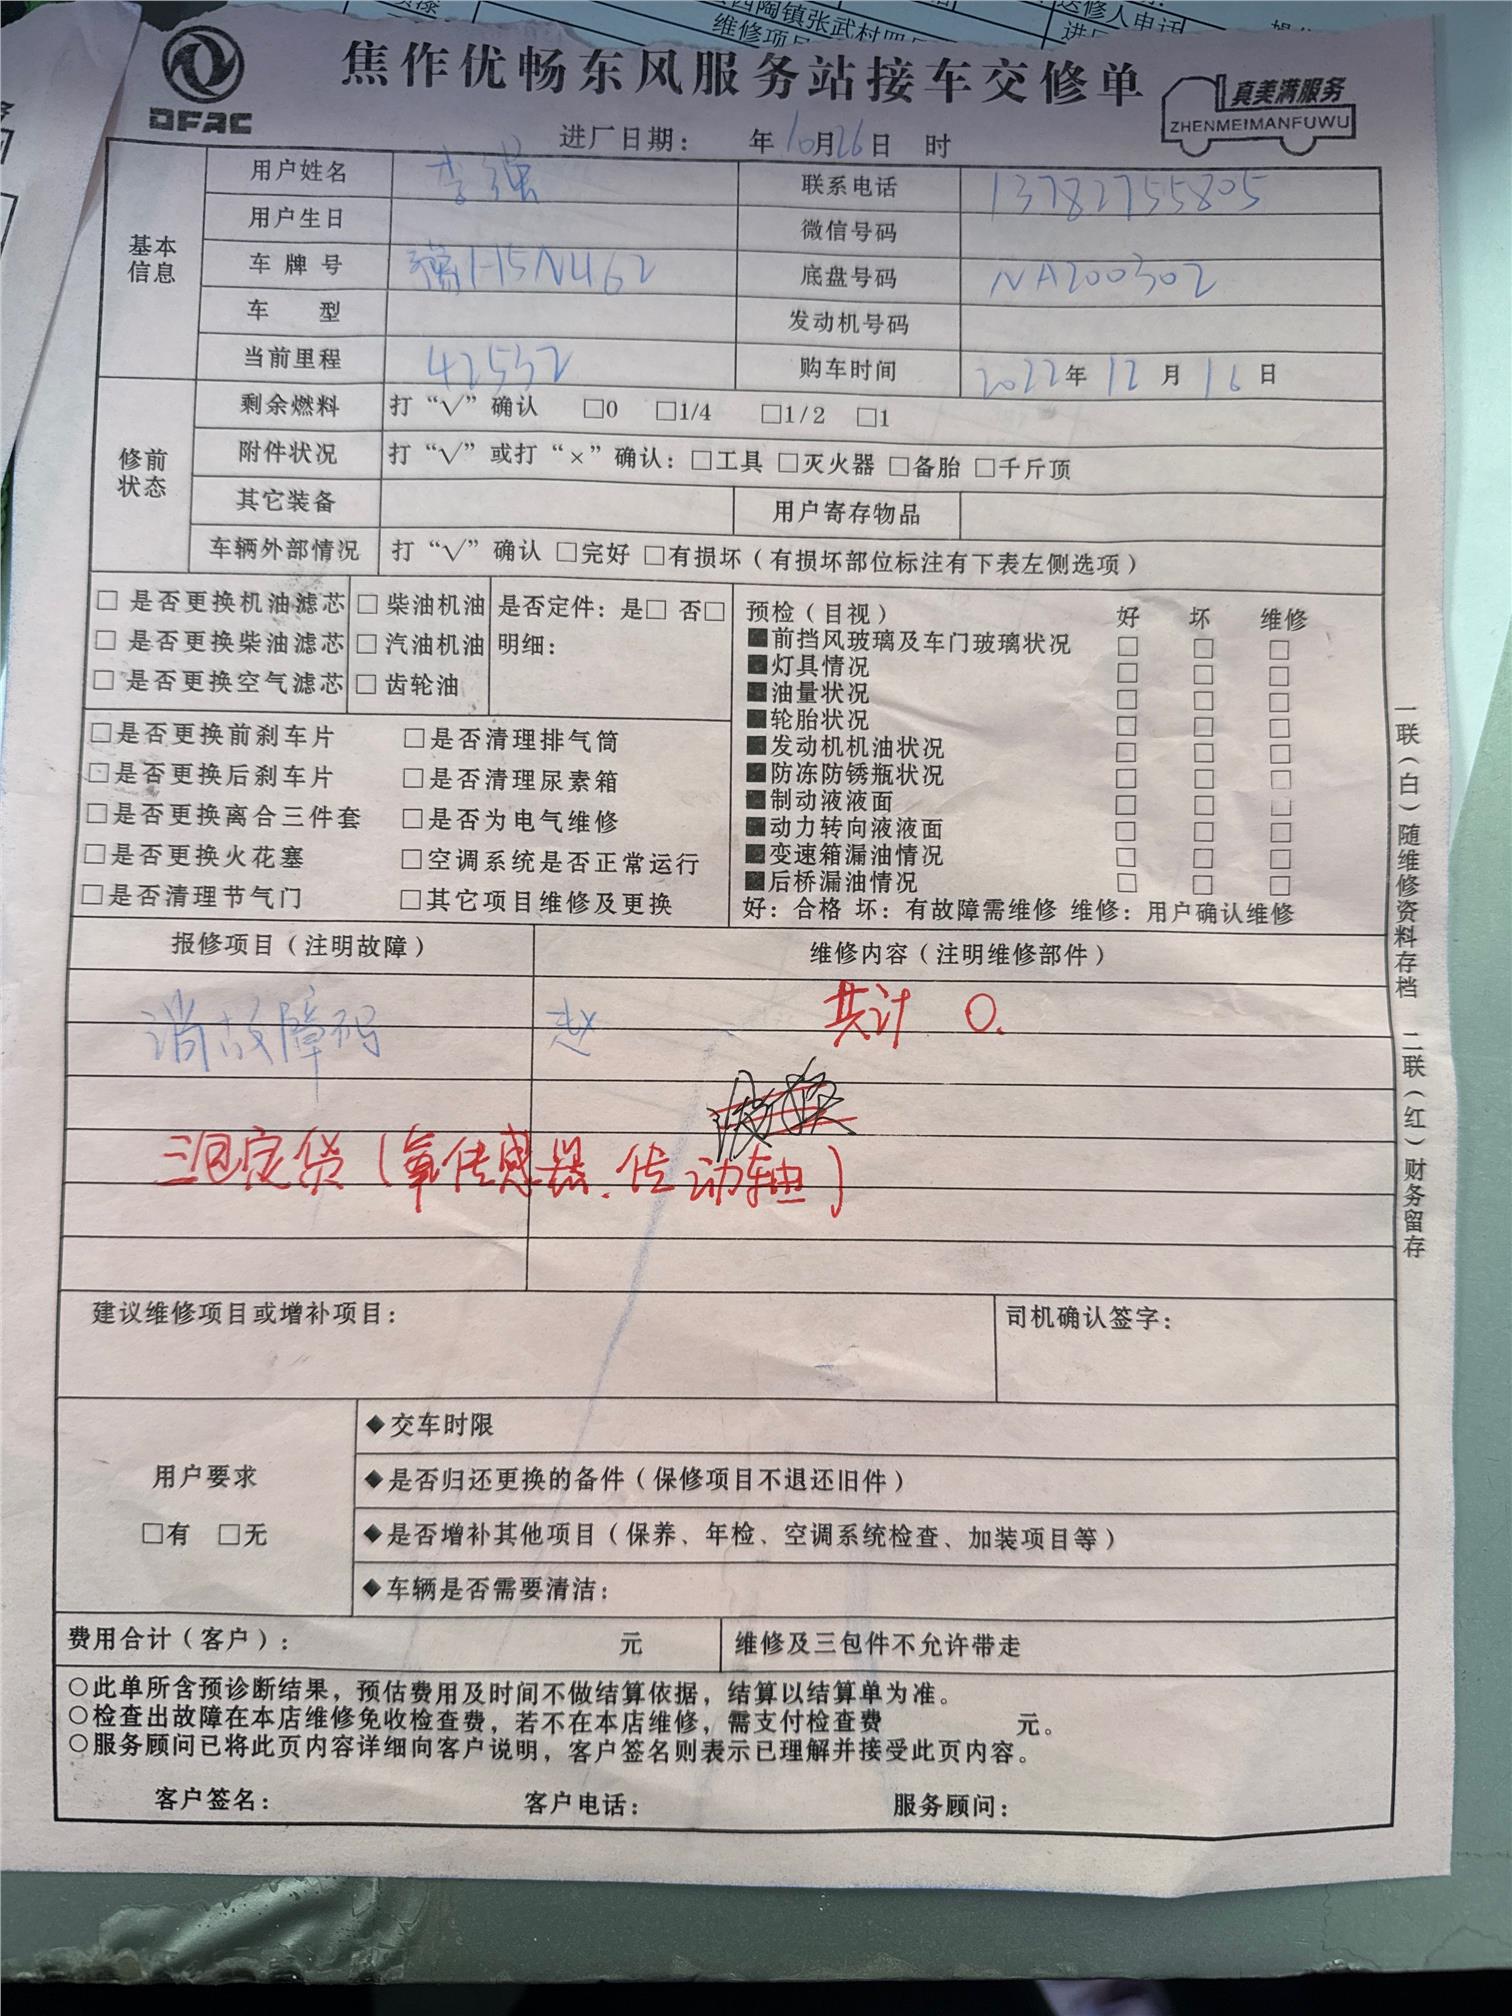 西陶镇张武村四
送修人电话
维修项目
焦作优畅东风服务站接车交修单
DFAC
真美满服务
ZHENMEIMANFUWU
进厂日期: 年10月26日 时
基本信息
用户姓名 李强 联系电话 13782755805
用户生日 微信号码
车牌号 豫H15N462 底盘号码 NA200302
车型 发动机号码
当前里程 42532 购车时间 2022年12月16日
修前状态
剩余燃料 打“√”确认 □0 □1/4 □1/2 □1
附件状况 打“√”或打“×”确认: □工具 □灭火器 □备胎 □千斤顶
其它装备 用户寄存物品
车辆外部情况 打“√”确认 □完好 □有损坏(有损坏部位标注有下表左侧选项)
□是否更换机油滤芯 □柴油机油 是否定件: 是□ 否□
□是否更换柴油滤芯 □汽油机油 明细:
□是否更换空气滤芯 □齿轮油
□是否更换前刹车片 □是否清理排气筒
□是否更换后刹车片 □是否清理尿素箱
□是否更换离合三件套 □是否为电气维修
□是否更换火花塞 □空调系统是否正常运行
□是否清理节气门 □其它项目维修及更换
预检(目视) 好 坏 维修
■前挡风玻璃及车门玻璃状况 □ □ □
■灯具情况 □ □ □
■油量状况 □ □ □
■轮胎状况 □ □ □
■发动机机油状况 □ □ □
■防冻防锈瓶状况 □ □ □
■制动液液面 □ □ □
■动力转向液液面 □ □ □
■变速箱漏油情况 □ □ □
■后桥漏油情况 □ □ □
好: 合格 坏: 有故障需维修 维修: 用户确认维修
报修项目(注明故障) 维修内容(注明维修部件)
消故障码 赵 共计 0.
三包定货(氧传感器.传动轴)
建议维修项目或增补项目: 司机确认签字:
用户要求
□有 □无
◆交车时限
◆是否归还更换的备件(保修项目不退还旧件)
◆是否增补其他项目(保养、年检、空调系统检查、加装项目等)
◆车辆是否需要清洁:
费用合计(客户): 元 维修及三包件不允许带走
○此单所含预诊断结果,预估费用及时间不做结算依据,结算以结算单为准。
○检查出故障在本店维修免收检查费,若不在本店维修,需支付检查费 元。
○服务顾问已将此页内容详细向客户说明,客户签名则表示已理解并接受此页内容。
客户签名: 客户电话: 服务顾问:
一联(白)随维修资料存档 二联(红)财务留存